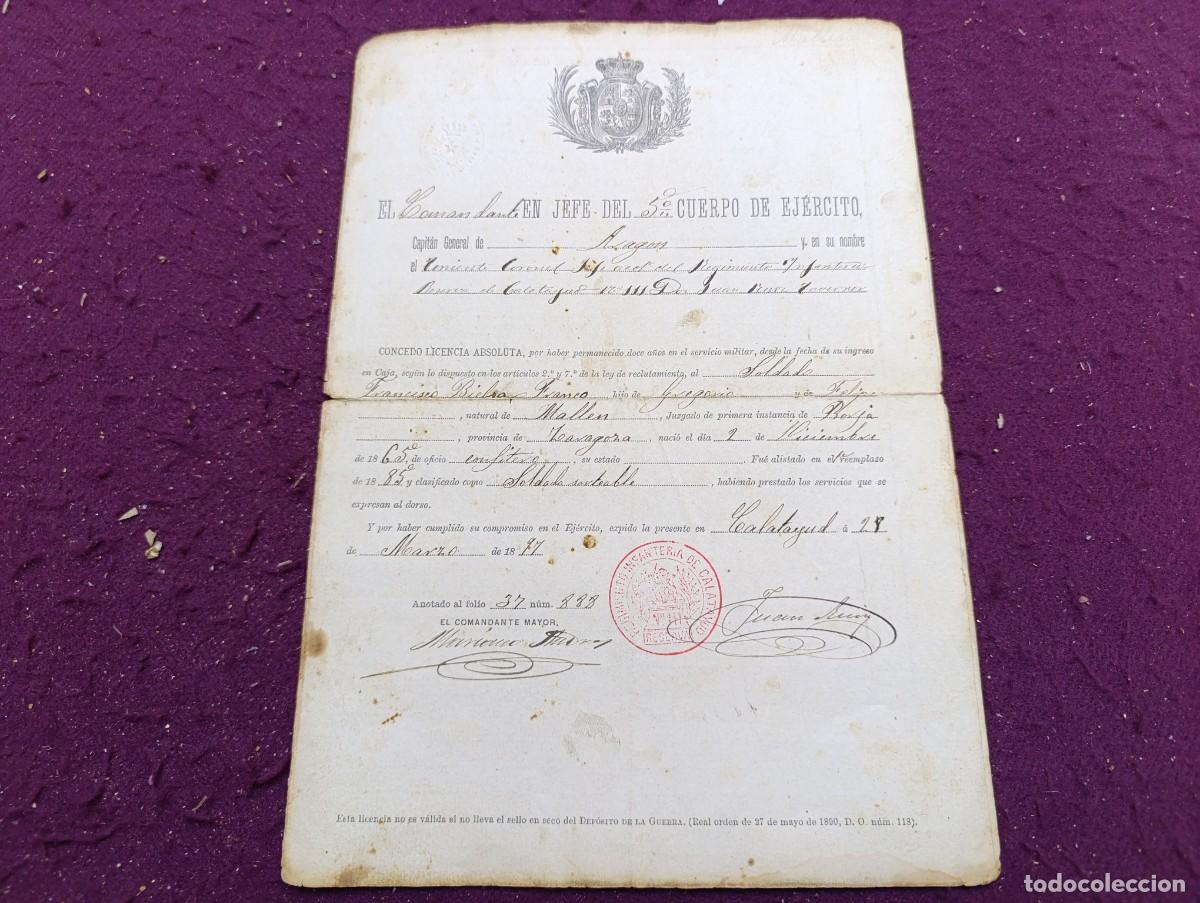 EL Comandante EN JEFE DEL 5º CUERPO DE EJÉRCITO,
Capitán General de Aragon y en su nombre
el Teniente Coronel Jefe accl. del Regimiento Infanteria
Reserva de Calatayud nº 111 Don Juan
CONCEDO LICENCIA ABSOLUTA, por haber permanecido doce años en el servicio militar, desde la fecha de su ingreso
en Caja, según lo dispuesto en los artículos 2.º y 7.º de la ley de reclutamiento, al Soldado
Francisco Bielsa Franco hijo de Gregorio y de Felipa
, natural de Mallen, Juzgado de primera instancia de Borja
, provincia de Zaragoza, nació el día 2 de Diciembre
de 1865, de oficio confitero, su estado . Fué alistado en el reemplazo
de 1885 y clasificado como Soldado sorteable, habiendo prestado los servicios que se
expresan al dorso.
Y por haber cumplido su compromiso en el Ejército, expido la presente en Calatayud á 28
de Marzo de 1897
Anotado al folio 37 núm. 888
EL COMANDANTE MAYOR,
Mariano
REGIMIENTO INFANTERIA DE CALATAYUD
Nº 111
RESERVA
Juan Ruiz
Esta licencia no es válida si no lleva el sello en seco del DEPÓSITO DE LA GUERRA. (Real orden de 27 de mayo de 1890, D. O. núm. 118).
todocoleccion